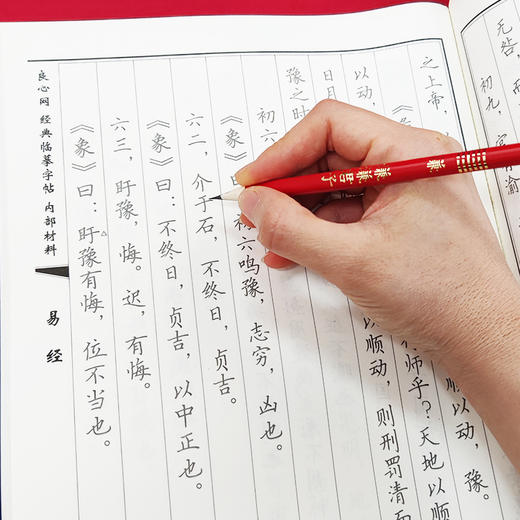 无咎，而
初九，官有渝
之上帝，
《
顺以动，豫。
以动，
师乎？天地以顺
日月
以顺动，则刑罚清而
豫之时
初六
《象》
初六鸣豫，志穷，凶也。
六二，介于石，不终日，贞吉。
《象》曰：不终日，贞吉，以中正也。
六三，盱豫，悔。迟，有悔。
《象》曰：盱豫有悔，位不当也。
良心网 经典临摹字帖 内部材料
易经